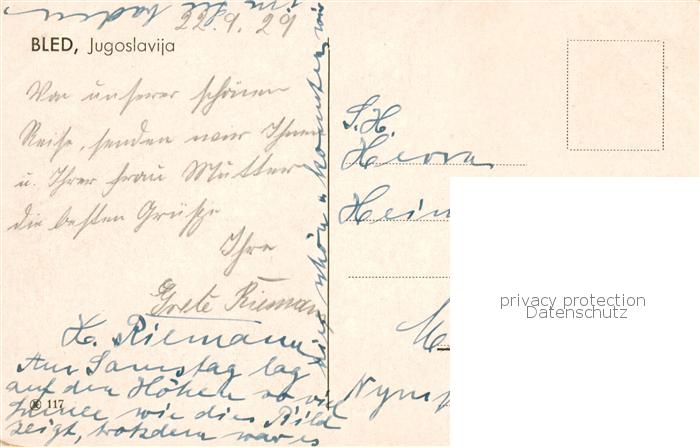 22.9.29
BLED, Jugoslavija
Von unserer schönen
Reise, senden wir Ihnen
u. Ihrer Frau Mutter
die besten Grüsse
Ihre
Grete Riemann
H. Riemann
Am Samstag lag
auf den Höhen so viel
Schnee wie dies Bild
zeigt, trotzdem war es
schön u. konnten wir
im See baden.
117
S.H.
Herrn
Hein
Nymp
privacy protection
Datenschutz